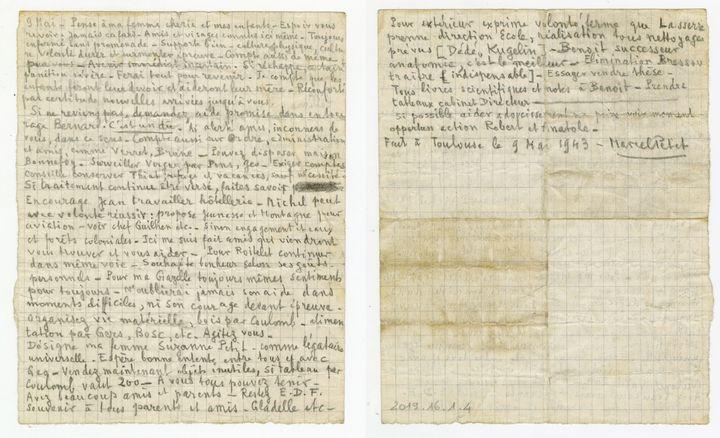 9 Mai - Pense à ma femme chérie et mes enfants - Espoir vous
revoir jamais cafard - Amis et visages connus ici même - Toujours
enfermé sans promenade - Supporte bien - culture physique, cultu
re volonté durcir et surmonter épreuve - Compte aussi de même
pour vous -
panition sévère - Ferai tout pour revenir - Je compte que les
enfants feront leur devoir et aideront leur mère - Réconforté
par certitude nouvelles arrivées jusqu'à vous -
Si ne reviens pas, demander, ou de promise dans
Bernard - C'est un dû - Si alerte amis, inconnus de
vous, dans ce sens - Compte aussi sur Ordre, administration
et amis, comme Verret, Brune - Pouvez disposer maison
Bonnefoy - Surveiller Verger par Pons, Geo - Exiger comptes
conseille conserver Phiat jusque et vacances, sauf nécessité -
Si traitement continue être versé, faites savoir
Encourage Jean travailler hôtellerie - Michel peut
avec volonté réussir : propose Jeunesse et Montagne pour
aviation - voir chef Guilhem etc - Sinon engagement et eaux
et forêts coloniales - Ici me suis fait amis qui viendront
vous trouver et vous aider - Pour Roitelet continuer
dans même voie - Souhaite bonheur selon ses goûts
personnels - Pour ma Gazelle toujours mêmes sentiments
pour toujours - N'oublierai jamais son aide dans
moments difficiles, ni son courage devant épreuve -
Organisez vie matérielle, bois par Coulomb - alimen
tation par Gers, Bosc, etc - Agitez vous -
Désigne ma femme Suzanne Petit - comme légataire
universelle - Espère bonne entente entre tous et avec
Geg - Vendez maintenant objets inutiles, Si tableau par
Coulomb vaut 200 - A vous tous pouvez tenir -
Avez beaucoup amis et parents - Restez E.D.F.
Souvenir à tous parents et amis - Gladelle etc -
Pour extérieur exprime volonté ferme que Lasserre
prenne direction Ecole, réalisation tous nettoyages
prévus [Dédé, Kugelin] - Benoit successeur
anatomie, c'est le meilleur - Elimination Bressou
traître [indispensable] - Essayer vendre thèse -
Tous livres scientifiques et notes à Benoit - Prendre
tableaux cabinet Directeur -
Si possible aider adoucissement
opportun action Robert et Anatole -
Fait à Toulouse le 9 Mai 1943 - Marcel Petit
2019.16.1.4